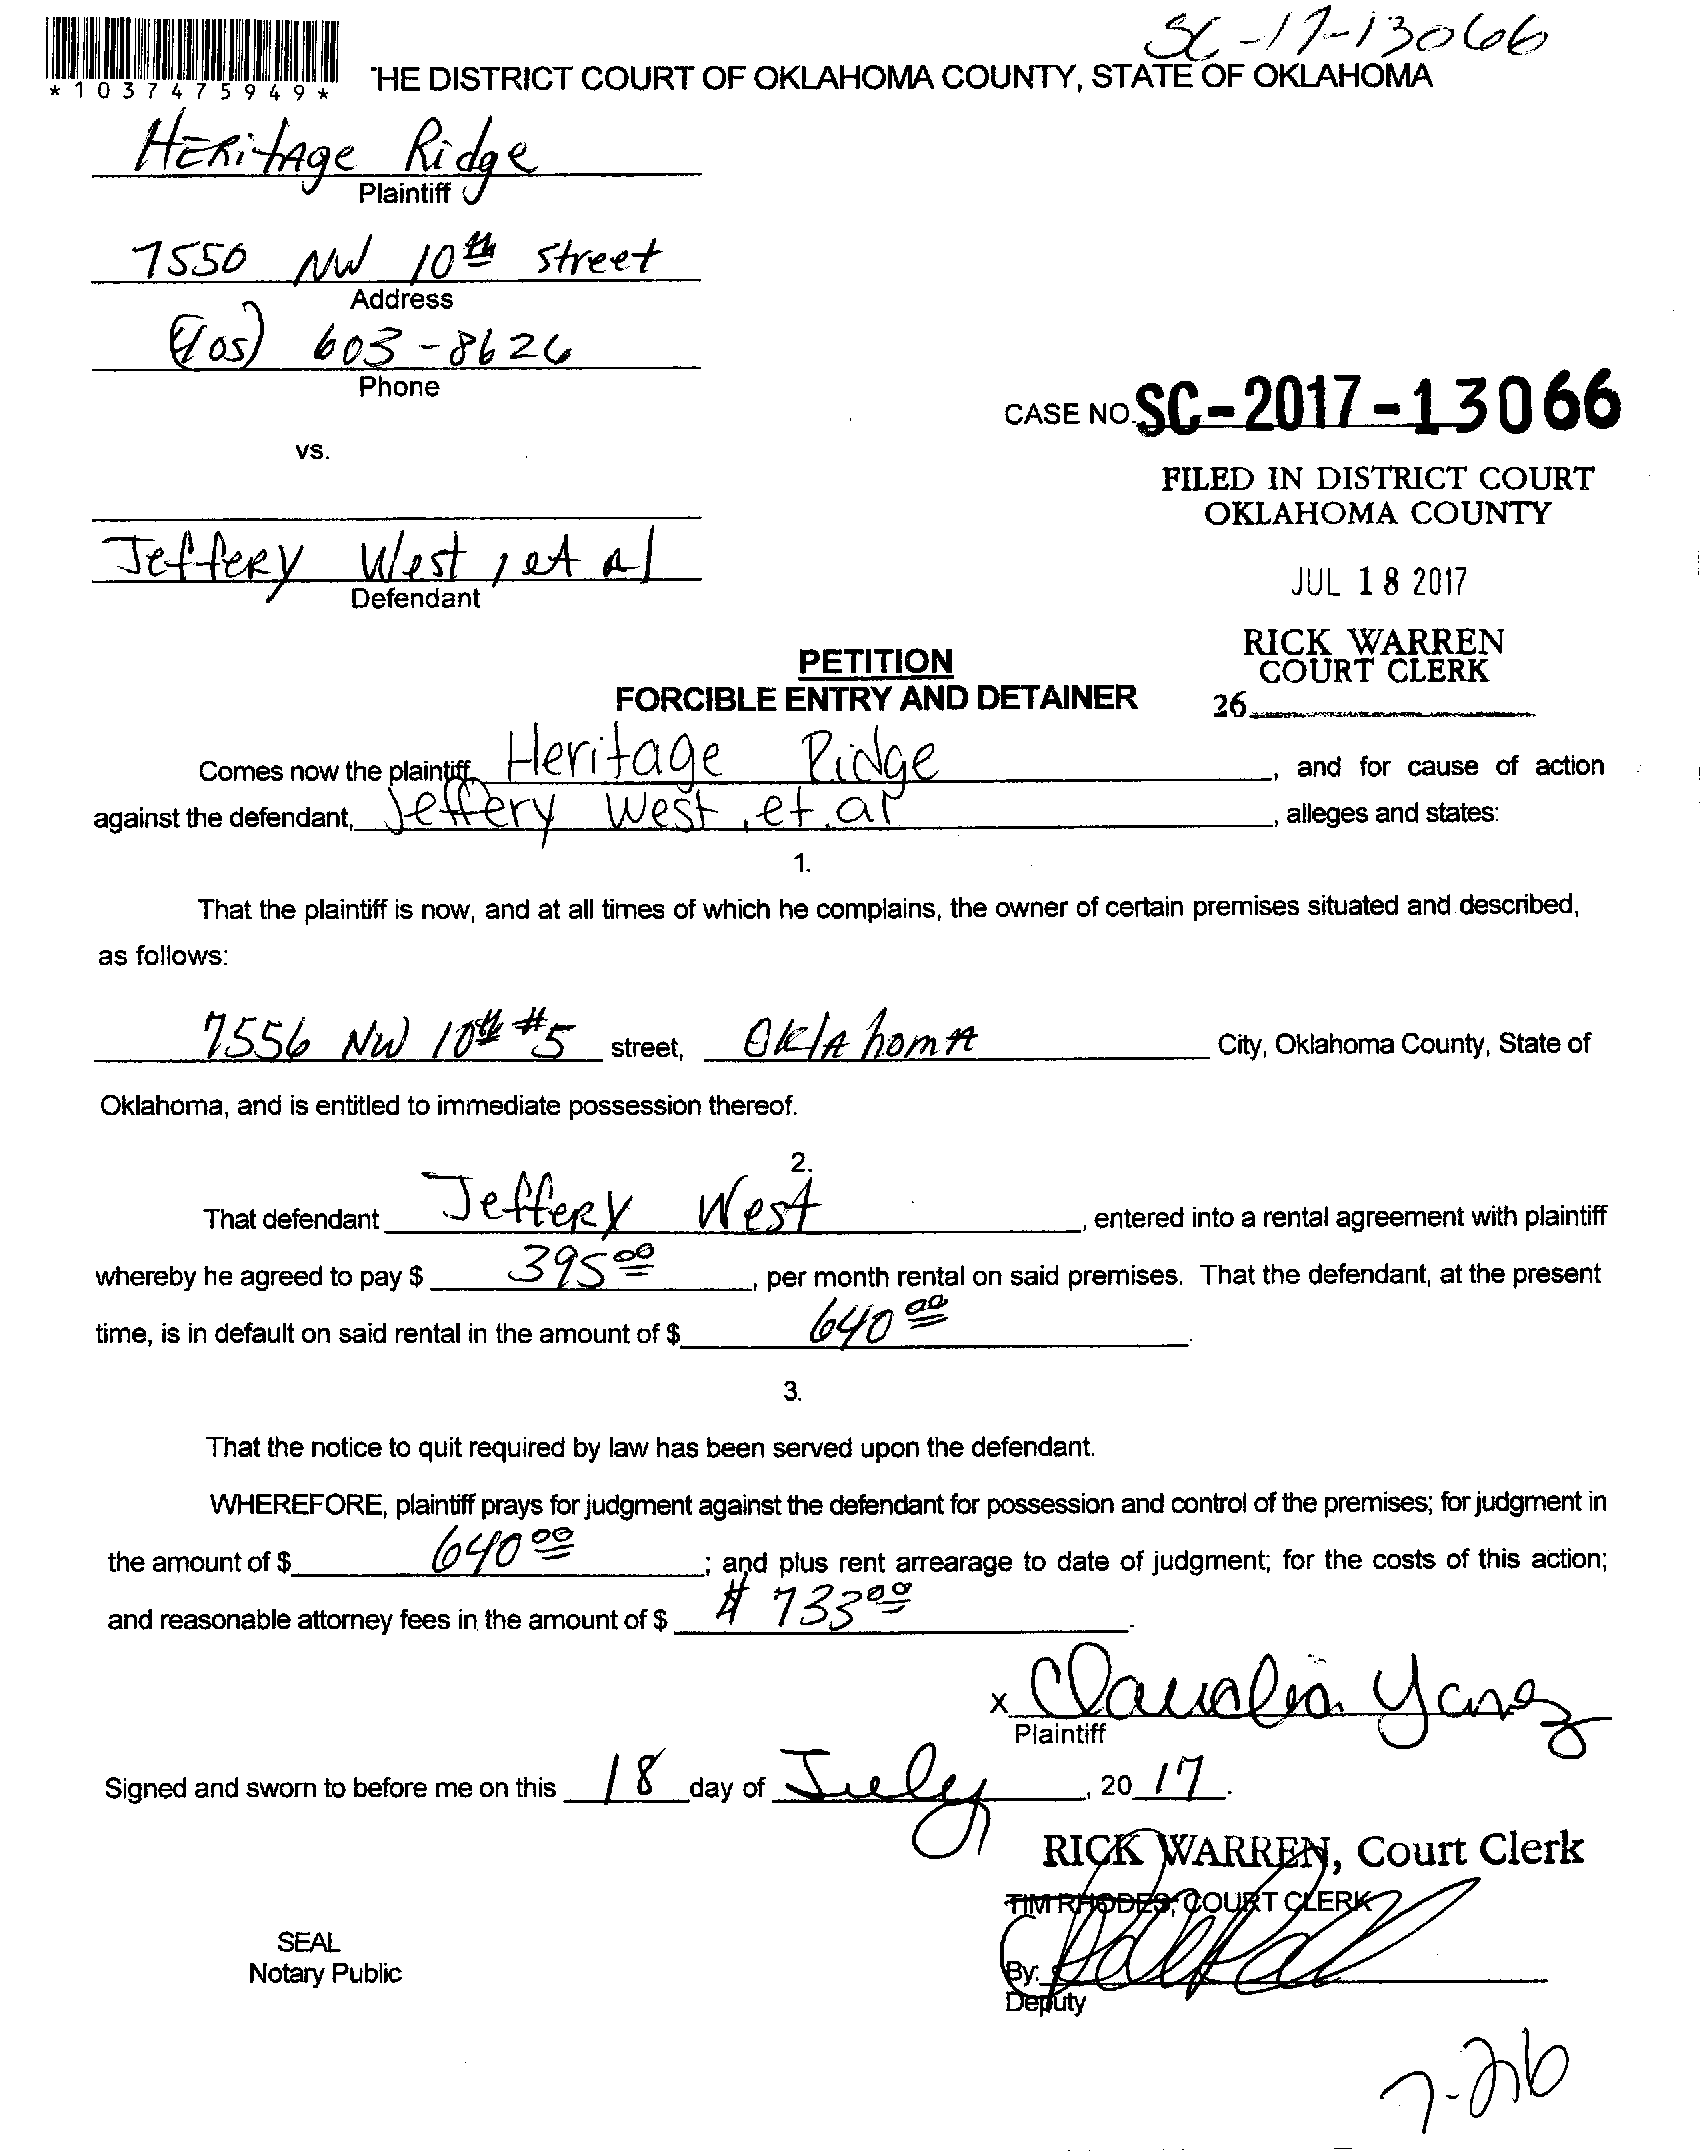 SC-17-13066
*1037475949*
HE DISTRICT COURT OF OKLAHOMA COUNTY, STATE OF OKLAHOMA
HERitAge Ridge
Plaintiff
7550 NW 10th street
Address
(405) 603-8626
Phone
CASE NO. SC-2017-13066
vs.
FILED IN DISTRICT COURT
OKLAHOMA COUNTY
Jeffery West, et al
Defendant
JUL 18 2017
RICK WARREN
COURT CLERK
26
PETITION
FORCIBLE ENTRY AND DETAINER
Comes now the plaintiff, Heritage Ridge, and for cause of action
against the defendant, Jeffery West, et.al, alleges and states:
1.
That the plaintiff is now, and at all times of which he complains, the owner of certain premises situated and described,
as follows:
7556 NW 10th #5 street, OklAhomA City, Oklahoma County, State of
Oklahoma, and is entitled to immediate possession thereof.
2.
That defendant Jeffery West, entered into a rental agreement with plaintiff
whereby he agreed to pay $ 395 00, per month rental on said premises. That the defendant, at the present
time, is in default on said rental in the amount of $ 640 00.
3.
That the notice to quit required by law has been served upon the defendant.
WHEREFORE, plaintiff prays for judgment against the defendant for possession and control of the premises; for judgment in
the amount of $ 640 00; and plus rent arrearage to date of judgment; for the costs of this action;
and reasonable attorney fees in the amount of $ # 733 00.
x Claudia Yanez
Plaintiff
Signed and sworn to before me on this 18 day of July, 2017.
RICK WARREN, Court Clerk
TIM RHODES, COURT CLERK
SEAL
Notary Public
By:
Deputy
7-26